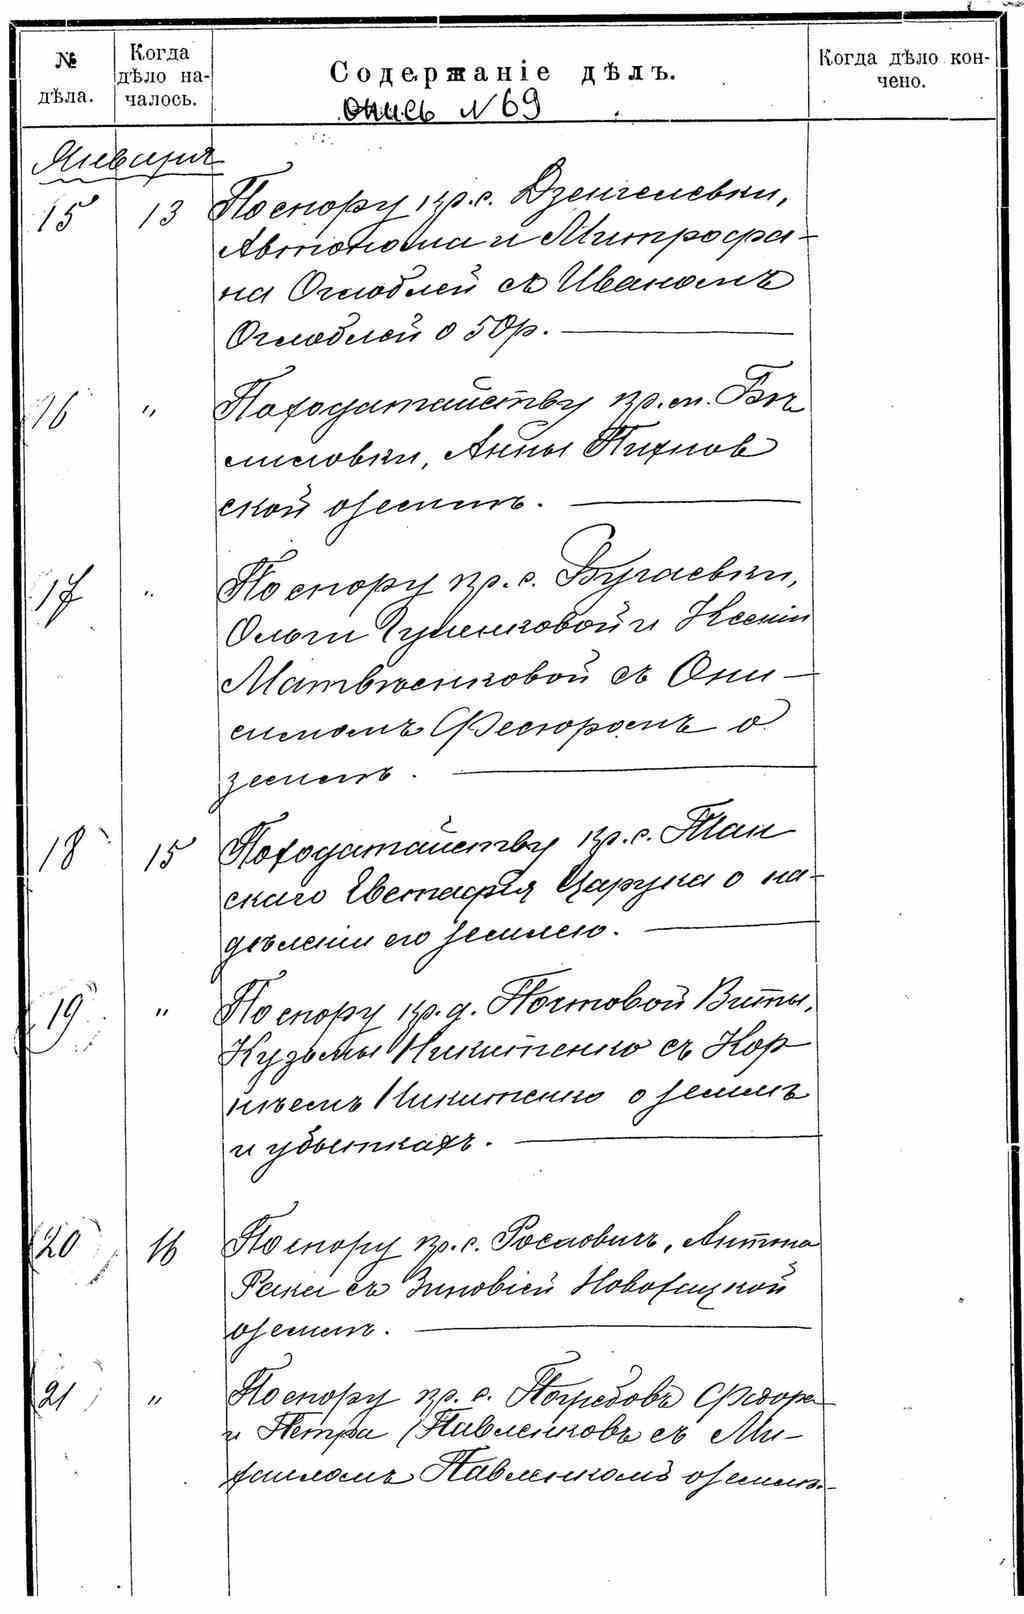 № дѣла.
Когда дѣло началось.
Содержаніе дѣлъ.
Когда дѣло кончено.
опись №69
Января
15 13 По спору кр. с. Дзенгелевки,
Автонома и Митрофа-
на Оглоблей съ Иваномъ
Оглоблей о 50р.
16 " По ходатайству кр. м. Бѣ
лиловки, Анны Пихнов
ской о землѣ.
17 " По спору кр. с. Бугаевки,
Ольги Гуменковой и Ксеніи
Матвѣенковой съ Они-
симомъ Фесюромъ о
землѣ.
18 15 По ходатайству кр. с. Тан
скаго Евстафія Царука о на-
дѣленіи его землею.
19 " По спору кр. д. Почтовой Виты,
Кузьмы Никитенко съ Кор
нѣемъ Никитенко о землѣ
и убыткахъ.
20 16 По спору кр. с. Рославичъ, Антона
Рака съ Зиновіей Новохацкой
о землѣ.
21 " По спору кр. с. Погребовъ Федора
и Петра Павленковъ съ Ми-
хаиломъ Павленкомъ о землѣ.